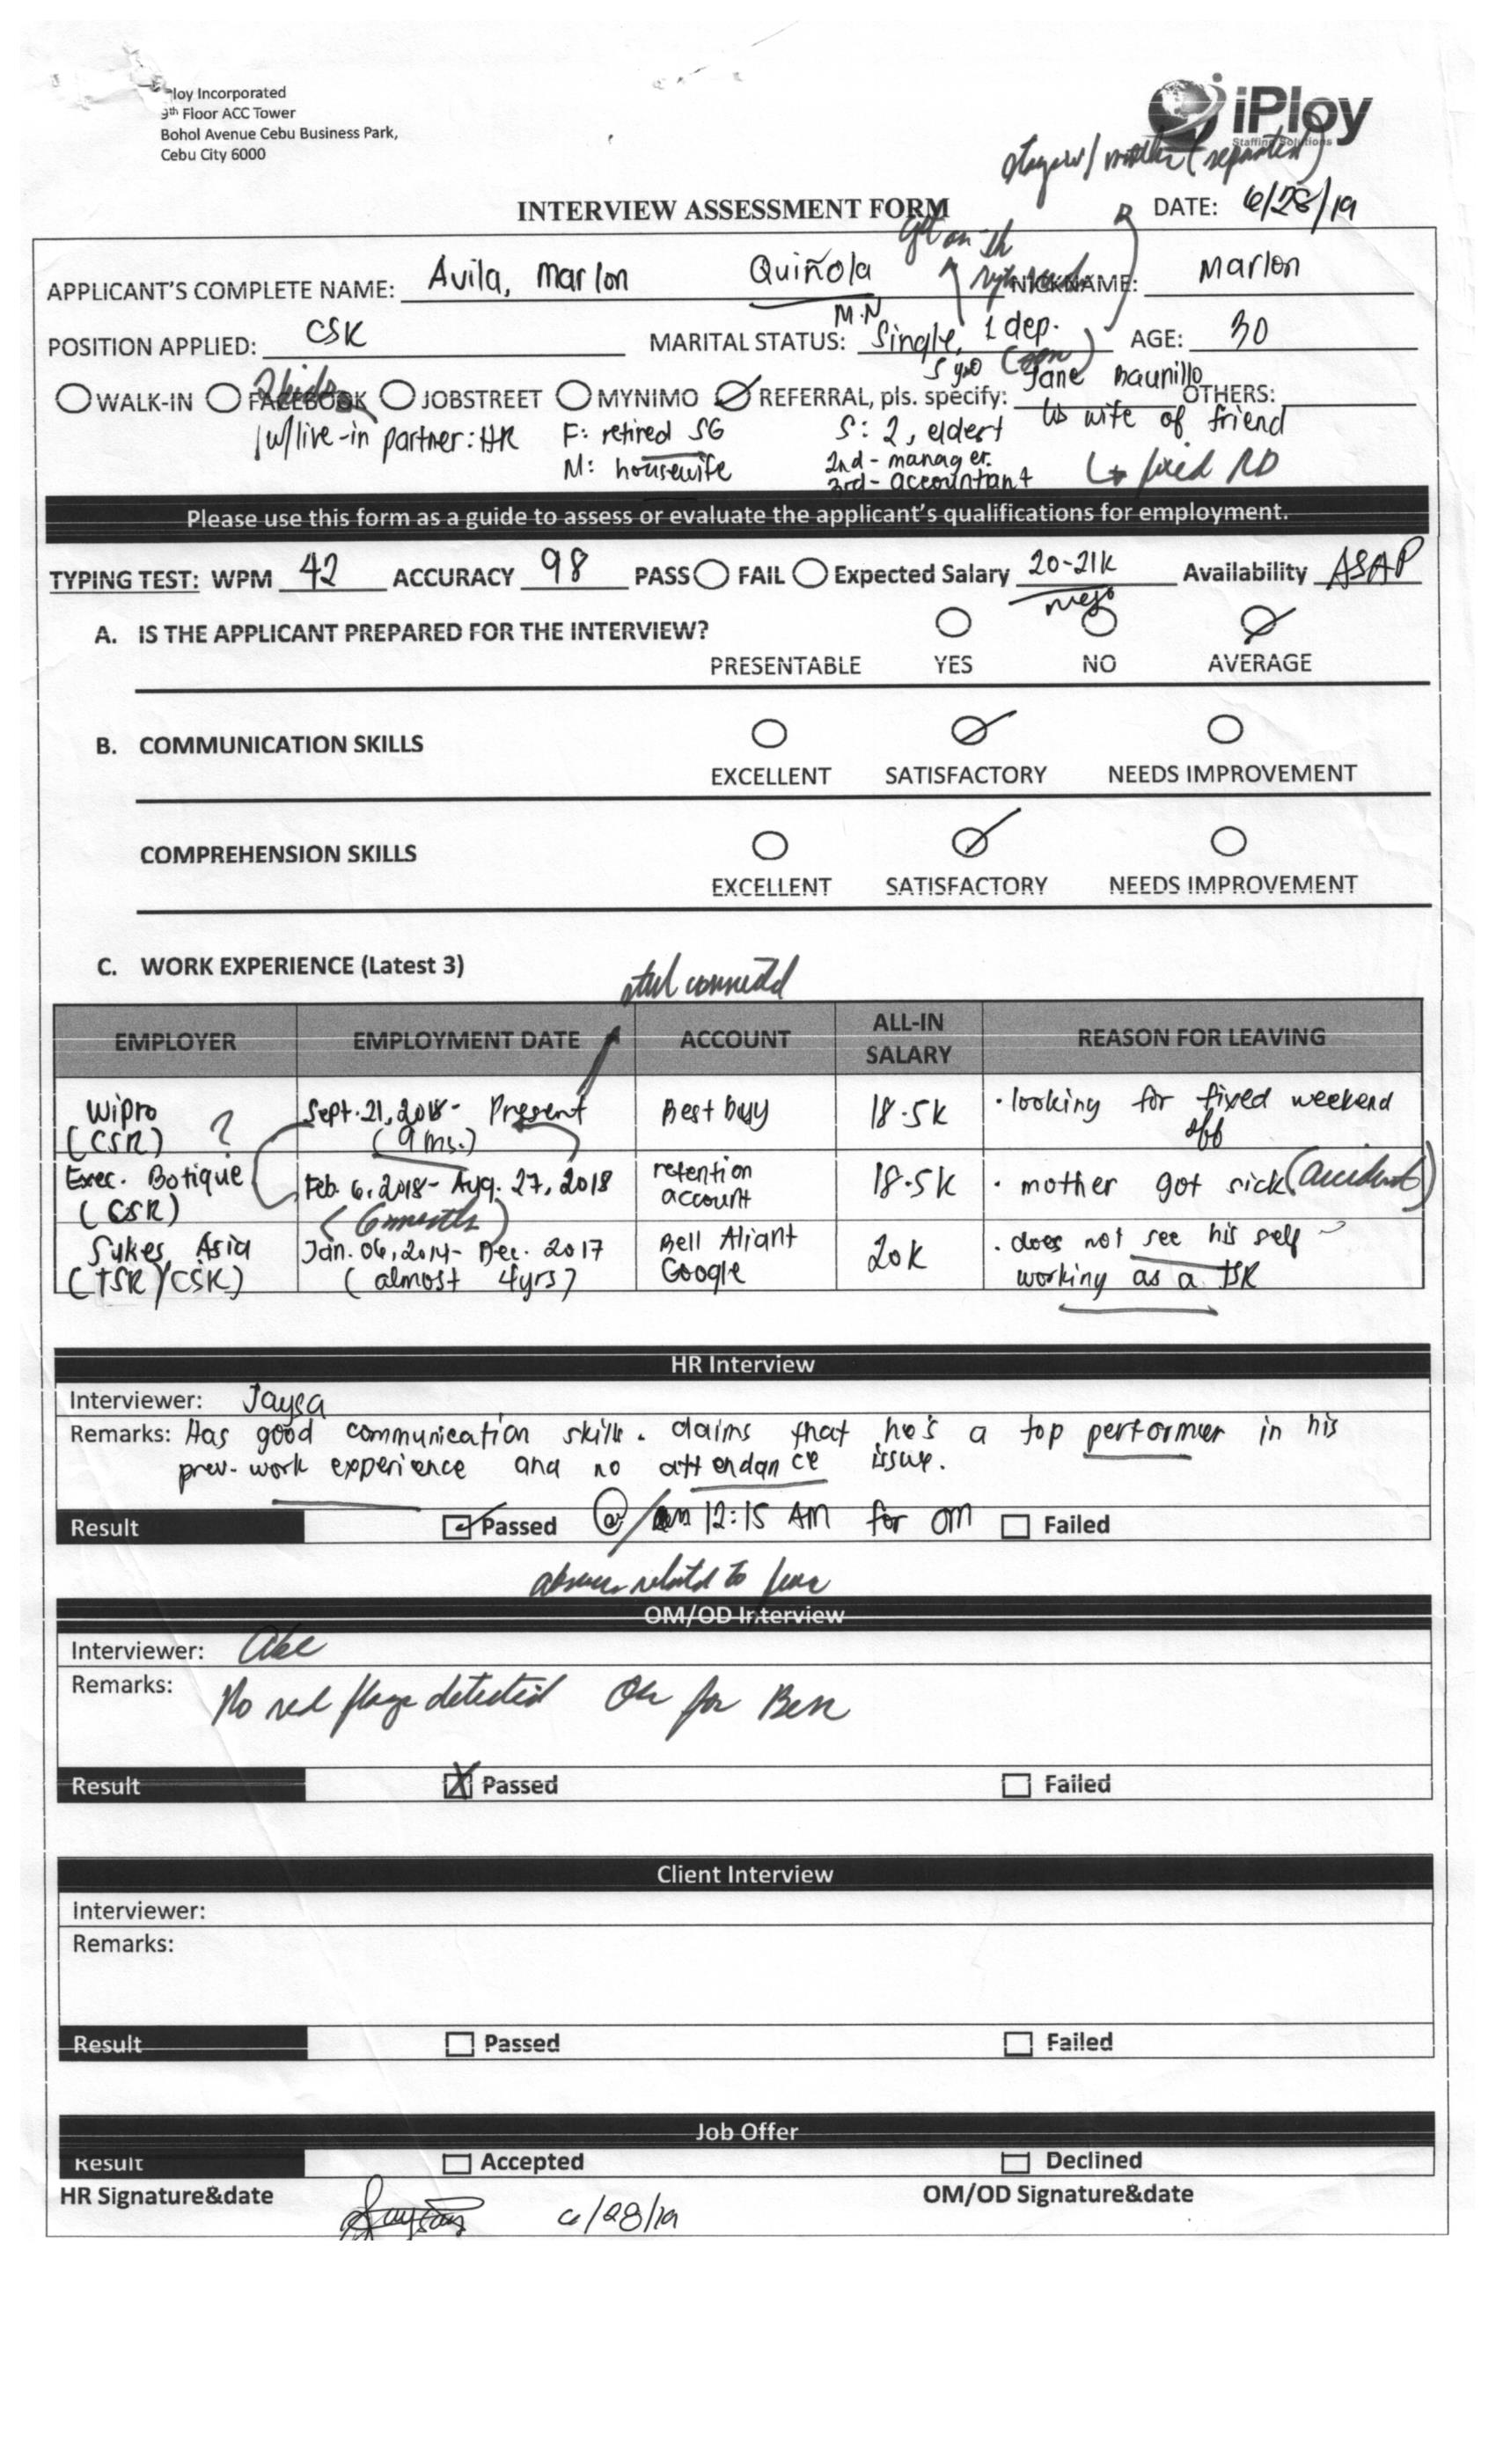 Ploy Incorporated
9th Floor ACC Tower
Bohol Avenue Cebu Business Park,
Cebu City 6000
iPloy
Staffing Solutions
mother (separated)
INTERVIEW ASSESSMENT FORM
DATE: 6/28/19
APPLICANT'S COMPLETE NAME: Avila, Marlon Quiñola NICKNAME: Marlon
M.N
POSITION APPLIED: CSR MARITAL STATUS: Single, 1 dep. AGE: 30
5 yo (son)
WALK-IN FACEBOOK JOBSTREET MYNIMO REFERRAL, pls. specify: Jane OTHERS:
2 kids
wife of friend
w/live-in partner: HR F: retired SG S: 2, eldest
M: housewife 2nd - manager.
3rd - accountant
fixed RD
Please use this form as a guide to assess or evaluate the applicant's qualifications for employment.
TYPING TEST: WPM 42 ACCURACY 98 PASS FAIL Expected Salary 20-21k Availability ASAP
nego
A. IS THE APPLICANT PREPARED FOR THE INTERVIEW?
PRESENTABLE YES NO AVERAGE
B. COMMUNICATION SKILLS
EXCELLENT SATISFACTORY NEEDS IMPROVEMENT
COMPREHENSION SKILLS
EXCELLENT SATISFACTORY NEEDS IMPROVEMENT
C. WORK EXPERIENCE (Latest 3)
still connected
EMPLOYER EMPLOYMENT DATE ACCOUNT ALL-IN SALARY REASON FOR LEAVING
Wipro (CSR) ? Sept. 21, 2018 - Present (9 ms.) Best buy 18.5K • looking for fixed weekend off
Exec. Botique (CSR) Feb. 6, 2018 - Aug. 27, 2018 (6 months) retention account 18.5K • mother got sick (accident)
Sykes Asia (TSR/CSR) Jan. 06, 2014 - Dec. 2017 (almost 4yrs) Bell Aliant Google 20K • does not see his self working as a TSR
HR Interview
Interviewer: Jaysa
Remarks: Has good communication skills. claims that he's a top performer in his
prev. work experience and no attendance issue.
Result Passed @ 12:15 AM for OM Failed
related to
OM/OD Interview
Interviewer: Abe
Remarks: No red flags detected Ok for Ben
Result Passed Failed
Client Interview
Interviewer:
Remarks:
Result Passed Failed
Job Offer
Result Accepted Declined
HR Signature&date 6/28/19 OM/OD Signature&date